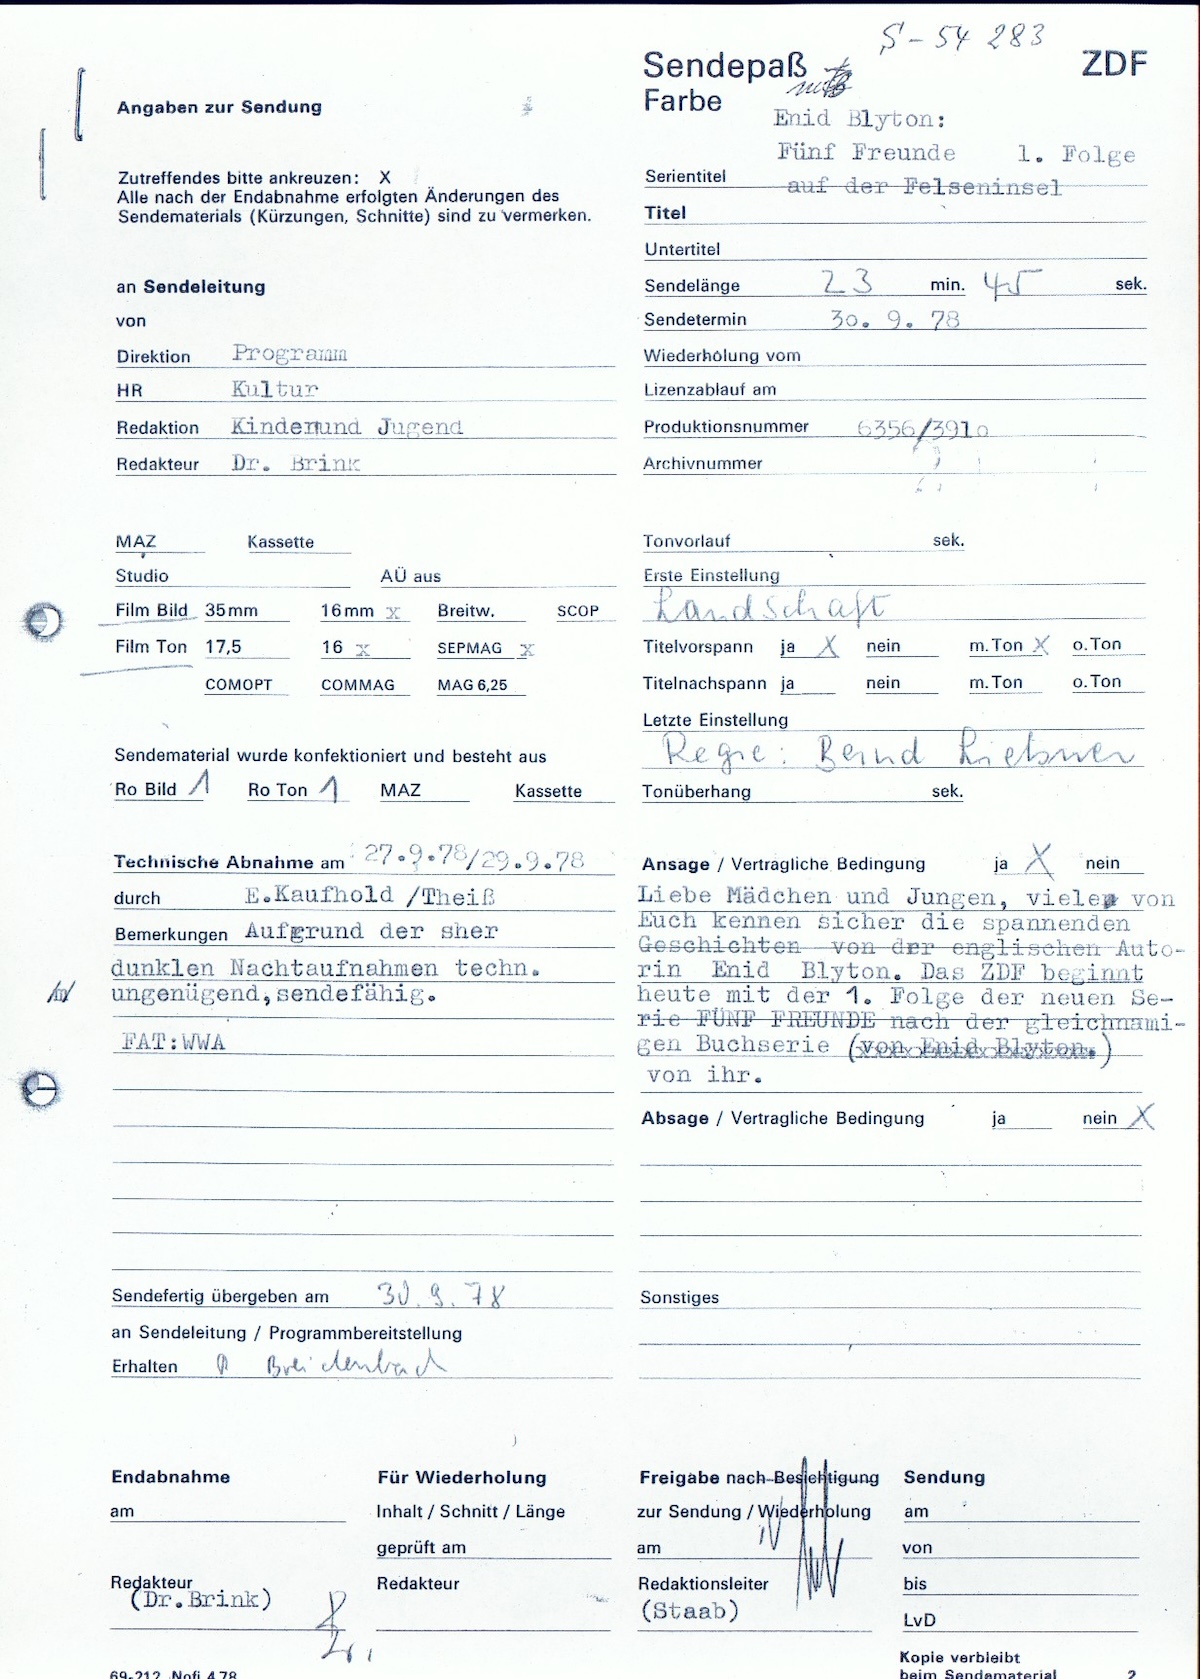 S-54 283
Sendepaß ZDF
Farbe
Enid Blyton:
Fünf Freunde 1. Folge
Serientitel auf der Felseninsel
Titel
Untertitel
Sendelänge 23 min. 45 sek.
Sendetermin 30. 9. 78
Wiederholung vom
Lizenzablauf am
Produktionsnummer 6356/3910
Archivnummer
Angaben zur Sendung
Zutreffendes bitte ankreuzen: X
Alle nach der Endabnahme erfolgten Änderungen des
Sendematerials (Kürzungen, Schnitte) sind zu vermerken.
an Sendeleitung
von
Direktion Programm
HR Kultur
Redaktion Kinder und Jugend
Redakteur Dr. Brink
MAZ Kassette
Studio AÜ aus
Film Bild 35mm 16mm x Breitw. SCOP
Film Ton 17,5 16 x SEPMAG x
COMOPT COMMAG MAG 6,25
Sendematerial wurde konfektioniert und besteht aus
Ro Bild 1 Ro Ton 1 MAZ Kassette
Tonvorlauf sek.
Erste Einstellung
Landschaft
Titelvorspann ja X nein m.Ton X o.Ton
Titelnachspann ja nein m.Ton o.Ton
Letzte Einstellung
Regie: Bernd Liebner
Tonüberhang sek.
Technische Abnahme am 27.9.78/29.9.78
durch E.Kaufhold /Theiß
Bemerkungen Aufgrund der sher
dunklen Nachtaufnahmen techn.
ungenügend,sendefähig.
FAT:WWA
Ansage / Vertragliche Bedingung ja X nein
Liebe Mädchen und Jungen, viele von
Euch kennen sicher die spannenden
Geschichten von der englischen Auto-
rin Enid Blyton. Das ZDF beginnt
heute mit der 1. Folge der neuen Se-
rie FÜNF FREUNDE nach der gleichnami-
gen Buchserie (von Enid Blyton.)
von ihr.
Absage / Vertragliche Bedingung ja nein X
Sendefertig übergeben am 30.9.78
an Sendeleitung / Programmbereitstellung
Erhalten Breidenbach
Sonstiges
Endabnahme
am
Redakteur
(Dr.Brink)
Für Wiederholung
Inhalt / Schnitt / Länge
geprüft am
Redakteur
Freigabe nach Besichtigung
zur Sendung / Wiederholung
am
Redaktionsleiter
(Staab)
Sendung
am
von
bis
LvD
Kopie verbleibt
beim Sendematerial 2
69-212 Nofi 4.78